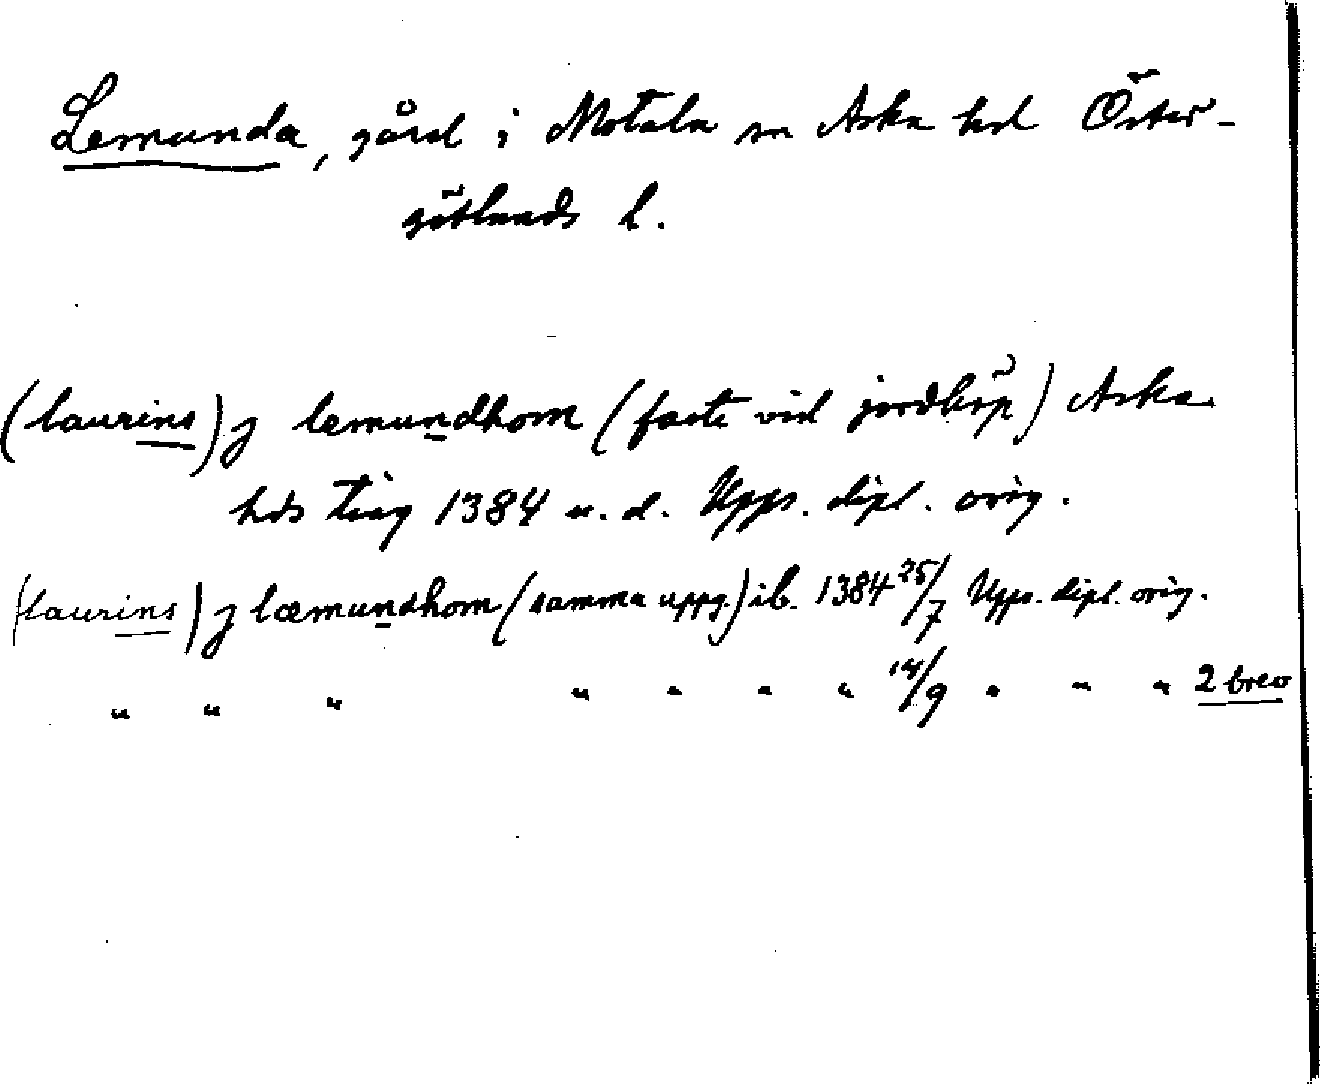 Lemunda, gård i Motala sn Aska hd Öster-
götlands l.
(laurins) j lemundhom (faste vid jordköp) Aska
hds ting 1384 u. d. Upps. dipl. orig.
(laurins) j læmundhom (samma uppg.) ib. 1384 25/7 Upps. dipl. orig.
" " " " " " " 14/9 " " " 2 brev